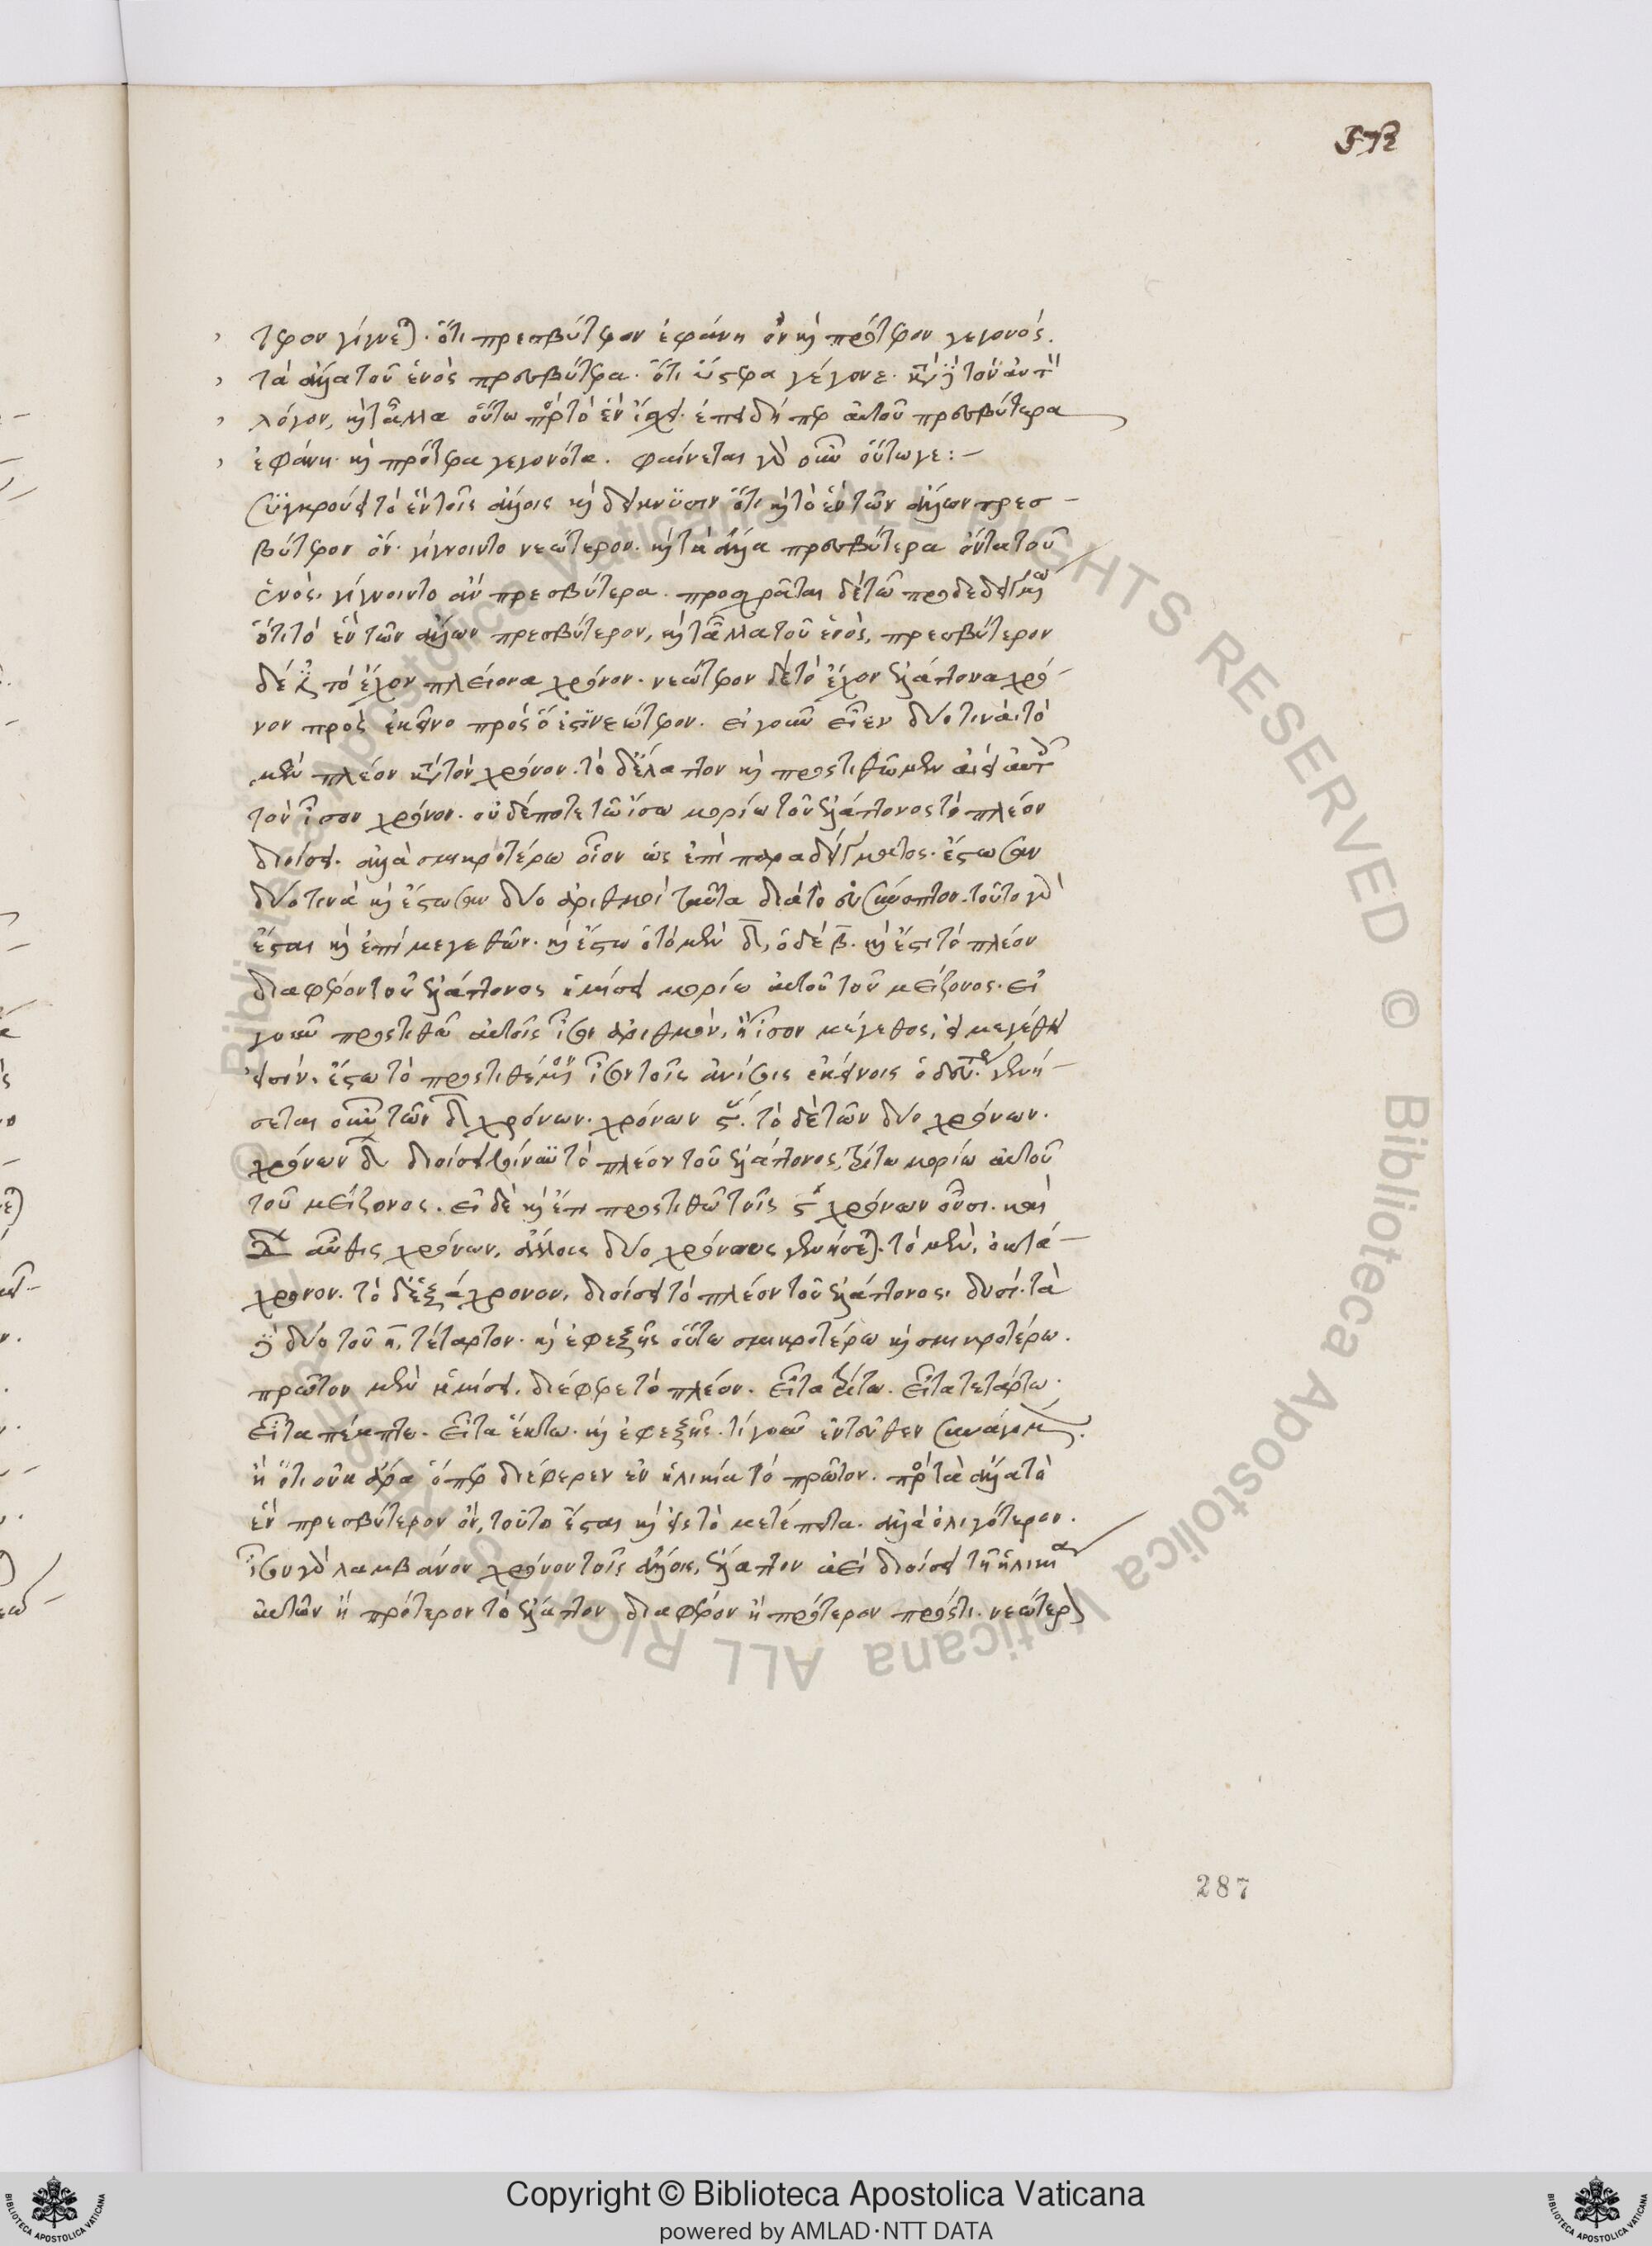 572
τερον γίγνεται. ὅτι πρεσβύτερον ἐφάνη ὂν καὶ πρότερον γεγονός.
τὰ ἄλλα τοῦ ἑνὸς πρεσβύτερα. ὅτι ὕστερα γέγονε. κατὰ δὲ τὸν αὐτὸν
λόγον, καὶ τἆλλα οὕτω πρὸς τὸ ἓν ἴσχει. ἐπειδήπερ αὐτοῦ πρεσβύτερα
ἐφάνη. καὶ πρότερα γεγονότα. φαίνεται γὰρ οὖν οὕτωγε:–
Συγκρούει τὸ ἓν τοῖς ἄλλοις καὶ δείκνυσιν ὅτι καὶ τὸ ἓν τῶν ἄλλων πρεσ–
βύτερον ὂν. γίγνοιντο νεώτερον. καὶ τὰ ἄλλα πρεσβύτερα ὄντα τοῦ
ἑνὸς. γίγνοιντο ἂν πρεσβύτερα. προσχρᾶται δὲ τῶ προδεδειγμένω
ὅτι τὸ ἓν τῶν ἄλλων πρεσβύτερον, καὶ τἆλλα τοῦ ἑνὸς, πρεσβύτερον
δέ ἐστι τὸ ἔχον πλείονα χρόνον. νεώτερον δὲ τὸ ἔχον ἐλάττονα χρό–
νον πρὸς ἐκεῖνο πρὸς ὅ ἐστι νεώτερον. εἰ γοῦν εἶεν δύο τινὰ. τὸ
μὲν πλέον κατὰ τὸν χρόνον. τὸ δ' ἔλαττον καὶ προστιθῶμεν ἀεὶ αὐτοῖς
τὸν ἴσον χρόνον. οὐδέποτε τῶ ἴσω μορίω τοῦ ἐλάττονος τὸ πλέον
διοίσει. ἀλλὰ σμικροτέρω οἷον ὡς ἐπὶ παραδείγματος. ἔστωσαν
δύο τινὰ καὶ ἔστωσαν δύο ἀριθμοὶ ταῦτα διὰ τὸ εὐσύνοπτον. τοῦτο γὰρ
ἔσται καὶ ἐπὶ μεγεθῶν. καὶ ἔστω ὁ τὸ μὲν δ, ὁ δὲ β. καὶ ἔστι τὸ πλέον
διαφέρον τοῦ ἐλάττονος ἡμίσει μορίω αὐτοῦ τοῦ μείζονος. εἰ
γοῦν προστιθῶ αὐτοῖς ἴσον ἀριθμὸν, ἢ ἴσον μέγεθος, εἰ μεγέθη
εἰσίν. ἔστω τὸ προστιθέμενον ἴσον τοῖς ἀνίσοις ἐκείνοις ὁ δύο. γενή–
σεται οὖν τῶν δ χρόνων. χρόνων ϛ. τὸ δὲ τῶν δύο χρόνων.
χρόνων δ διοίσει τὸ πλέον τοῦ ἐλάττονος, τρίτω μορίω αὐτοῦ
τοῦ μείζονος. εἰ δὲ καὶ ἔτι προστιθῶ τοῖς ϛ χρόνων οὖσι. καὶ
δ αὖθις χρόνων. ἄλλους δύο χρόνους γενήσεται. τὸ μὲν, ὀκτά–
χρονον. τὸ δὲ ἑξάχρονον. διοίσει τὸ πλέον τοῦ ἐλάττονος. δυσί. τὰ
δὲ δύο τοῦ η, τέταρτον. καὶ ἐφεξῆς οὕτω σμικροτέρω καὶ σμικροτέρω.
πρῶτον μὲν ἡμίσει. διέφερε τὸ πλέον. εἶτα τρίτω. εἶτα τετάρτω.
εἶτα πέμπτω. εἶτα ἕκτω. καὶ ἐφεξῆς. τί γοῦν ἐντεῦθεν συνάγομεν.
ἢ ὅτι οὐκ ἄρα ὅπερ διέφερεν ἐν ἡλικία τὸ πρῶτον. πρὸς τὰ ἄλλα τὸ
ἓν πρεσβύτερον ὂν, τοῦτο ἔσται καὶ εἰς τὸ μετέπειτα. ἀλλὰ ὀλιγότερον.
ἴσον γὰρ λαμβάνον χρόνον τοῖς ἄλλοις, ἔλαττον ἀεὶ διοίσει τῆ ἡλικία
αὐτῶν ἢ πρότερον τὸ ἔλαττον διαφέρον ἢ πρότερον πρόστι. νεώτερον
287
Copyright © Biblioteca Apostolica Vaticana
powered by AMLAD·NTT DATA